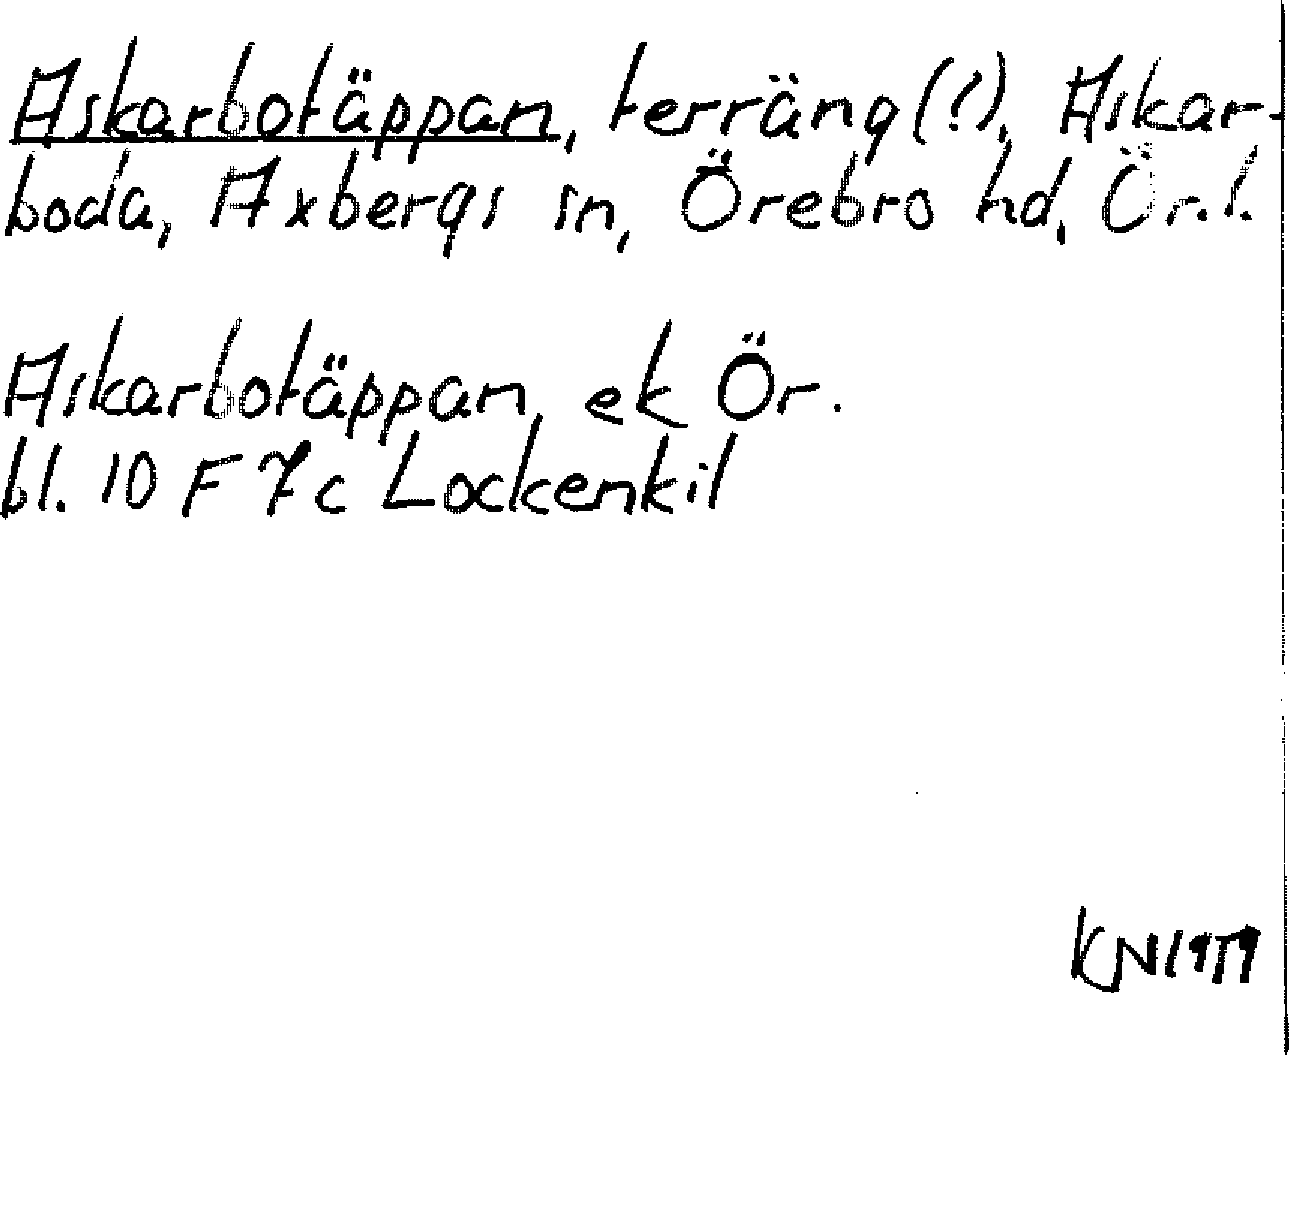 Askarbotäppan, terräng(?), Askar-
boda, Axbergs sn, Örebro hd, Ör.l.
Askarbotäppan, ek Ör.
bl. 10 F 7c Lockenkil
KN 1979